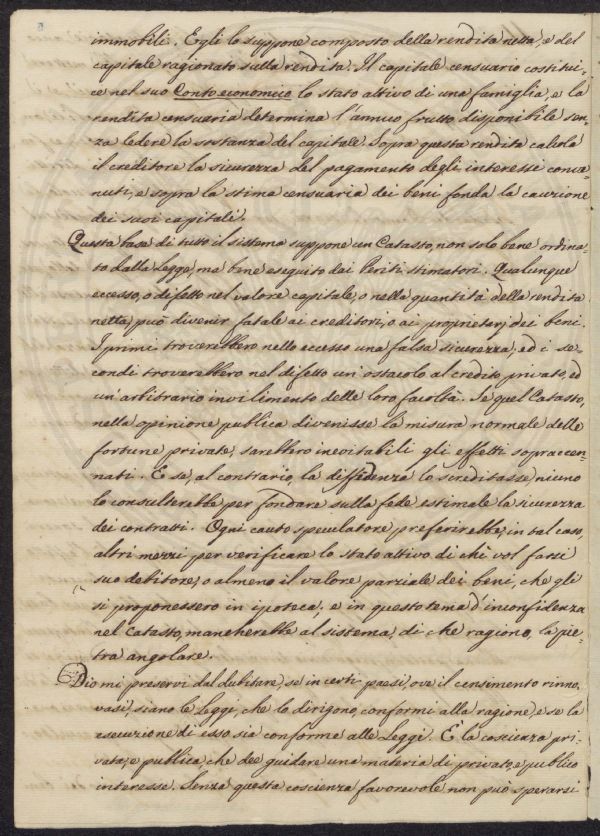 immobili. Egli lo suppone composto della rendita netta, e del
capitale ragionato sulla rendita. Il capitale censuario costitui-
ce nel suo Conto economico lo stato attivo di una famiglia, e la
rendita censuaria determina l'annuo frutto disponibile sen-
za ledere la sostanza del capitale. Sopra questa rendita calcola
il creditore la sicurezza del pagamento degli interessi conve-
nuti, e sopra la stima censuaria dei beni fonda la cauzione
dei suoi capitali.
Questa base di tutto il sistema suppone un Catasto, non solo bene ordina-
to dalla Legge, ma bene eseguito dai Periti stimatori. Qualunque
eccesso, o difetto nel valore capitale, o nella quantità della rendita
netta, può divenir fatale ai creditori, o ai proprietarj dei beni.
I primi troverebbero nello eccesso una falsa sicurezza, ed i se-
condi troverebbero nel difetto un'ostacolo al credito privato, ed
un'arbitrario invilimento delle loro facoltà. Se quel Catasto,
nella opinione publica divenisse la misura normale delle
fortune private, sarebbero inevitabili gli effetti sopraccen-
nati. E se, al contrario, la diffidenza lo screditasse, niuno
lo consulterebbe per fondare sulla fede estimale la sicurezza
dei contratti. Ogni cauto speculatore preferirebbe, in tal caso,
altri mezzi per verificare lo stato attivo di chi vol farsi
suo debitore, o almeno il valore parziale dei beni, che gli
si proponessero in ipoteca; e in questo tema d'inconfidenza
nel Catasto, mancherebbe al sistema, di che ragiono, la pie-
tra angolare.
Dio mi preservi dal dubitare, se in certi paesi, ove il censimento rinno-
vasi, siano le Leggi, che lo dirigono, conformi alla ragione, e se la
esecuzione di esso sia conforme alle Leggi. È la coscienza pri-
vata, e publica, che dee guidare una materia di privato, e publico
interesse. Senza questa coscienza favorevole non può sperarsi